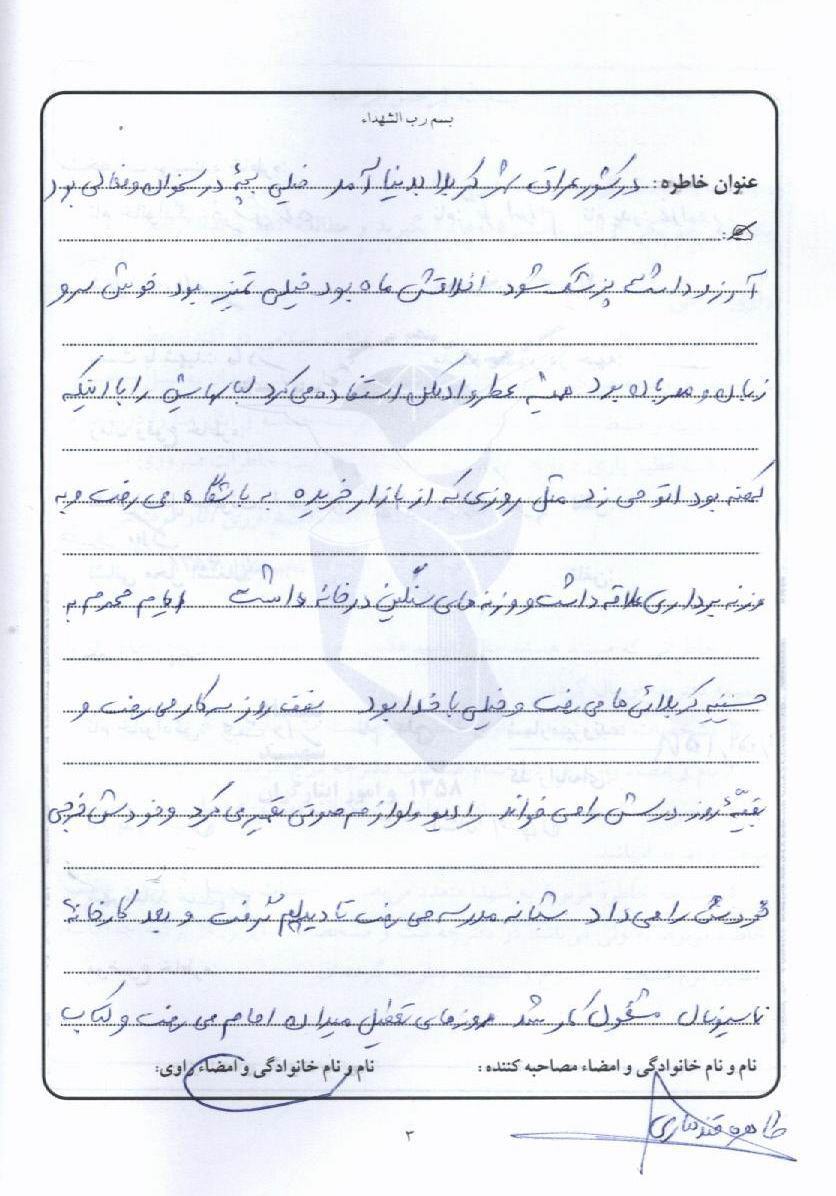 بسم رب الشهداء
عنوان خاطره: در کشور عراق شهر کربلا بدنیا آمد خیلی بچهٔ درسخوان و فعالی بود
آرزو داشت پزشک شود اخلاقش ماه بود خیلی تمیز بود خوش سرو
زبان و مهربان بود همیشه عطر و ادکلن استفاده می کرد لباسهایش را با اینکه
کهنه بود اتو می زد مثل روزی که از بازار خریده به باشگاه می رفت و به
وزنه برداری علاقه داشت و وزنه های سنگین در خانه داشت ایام محرم به
حسینیه کربلائی ها می رفت و خیلی با خدا بود نصف روز سرکار می رفت و
بقیهٔ روز درسش را می خواند رادیو و لوازم صوتی تعمیر می کرد و خودش خرجی
خودش را می داد شبانه مدرسه می رفت تا دیپلم گرفت و بعد کارخانهٔ
ناسیونال مشغول کار شد روزهای تعطیل میدان امام می رفت و کتاب
نام و نام خانوادگی و امضاء مصاحبه کننده : نام و نام خانوادگی و امضاء راوی:
طاهره قندهاری
۳